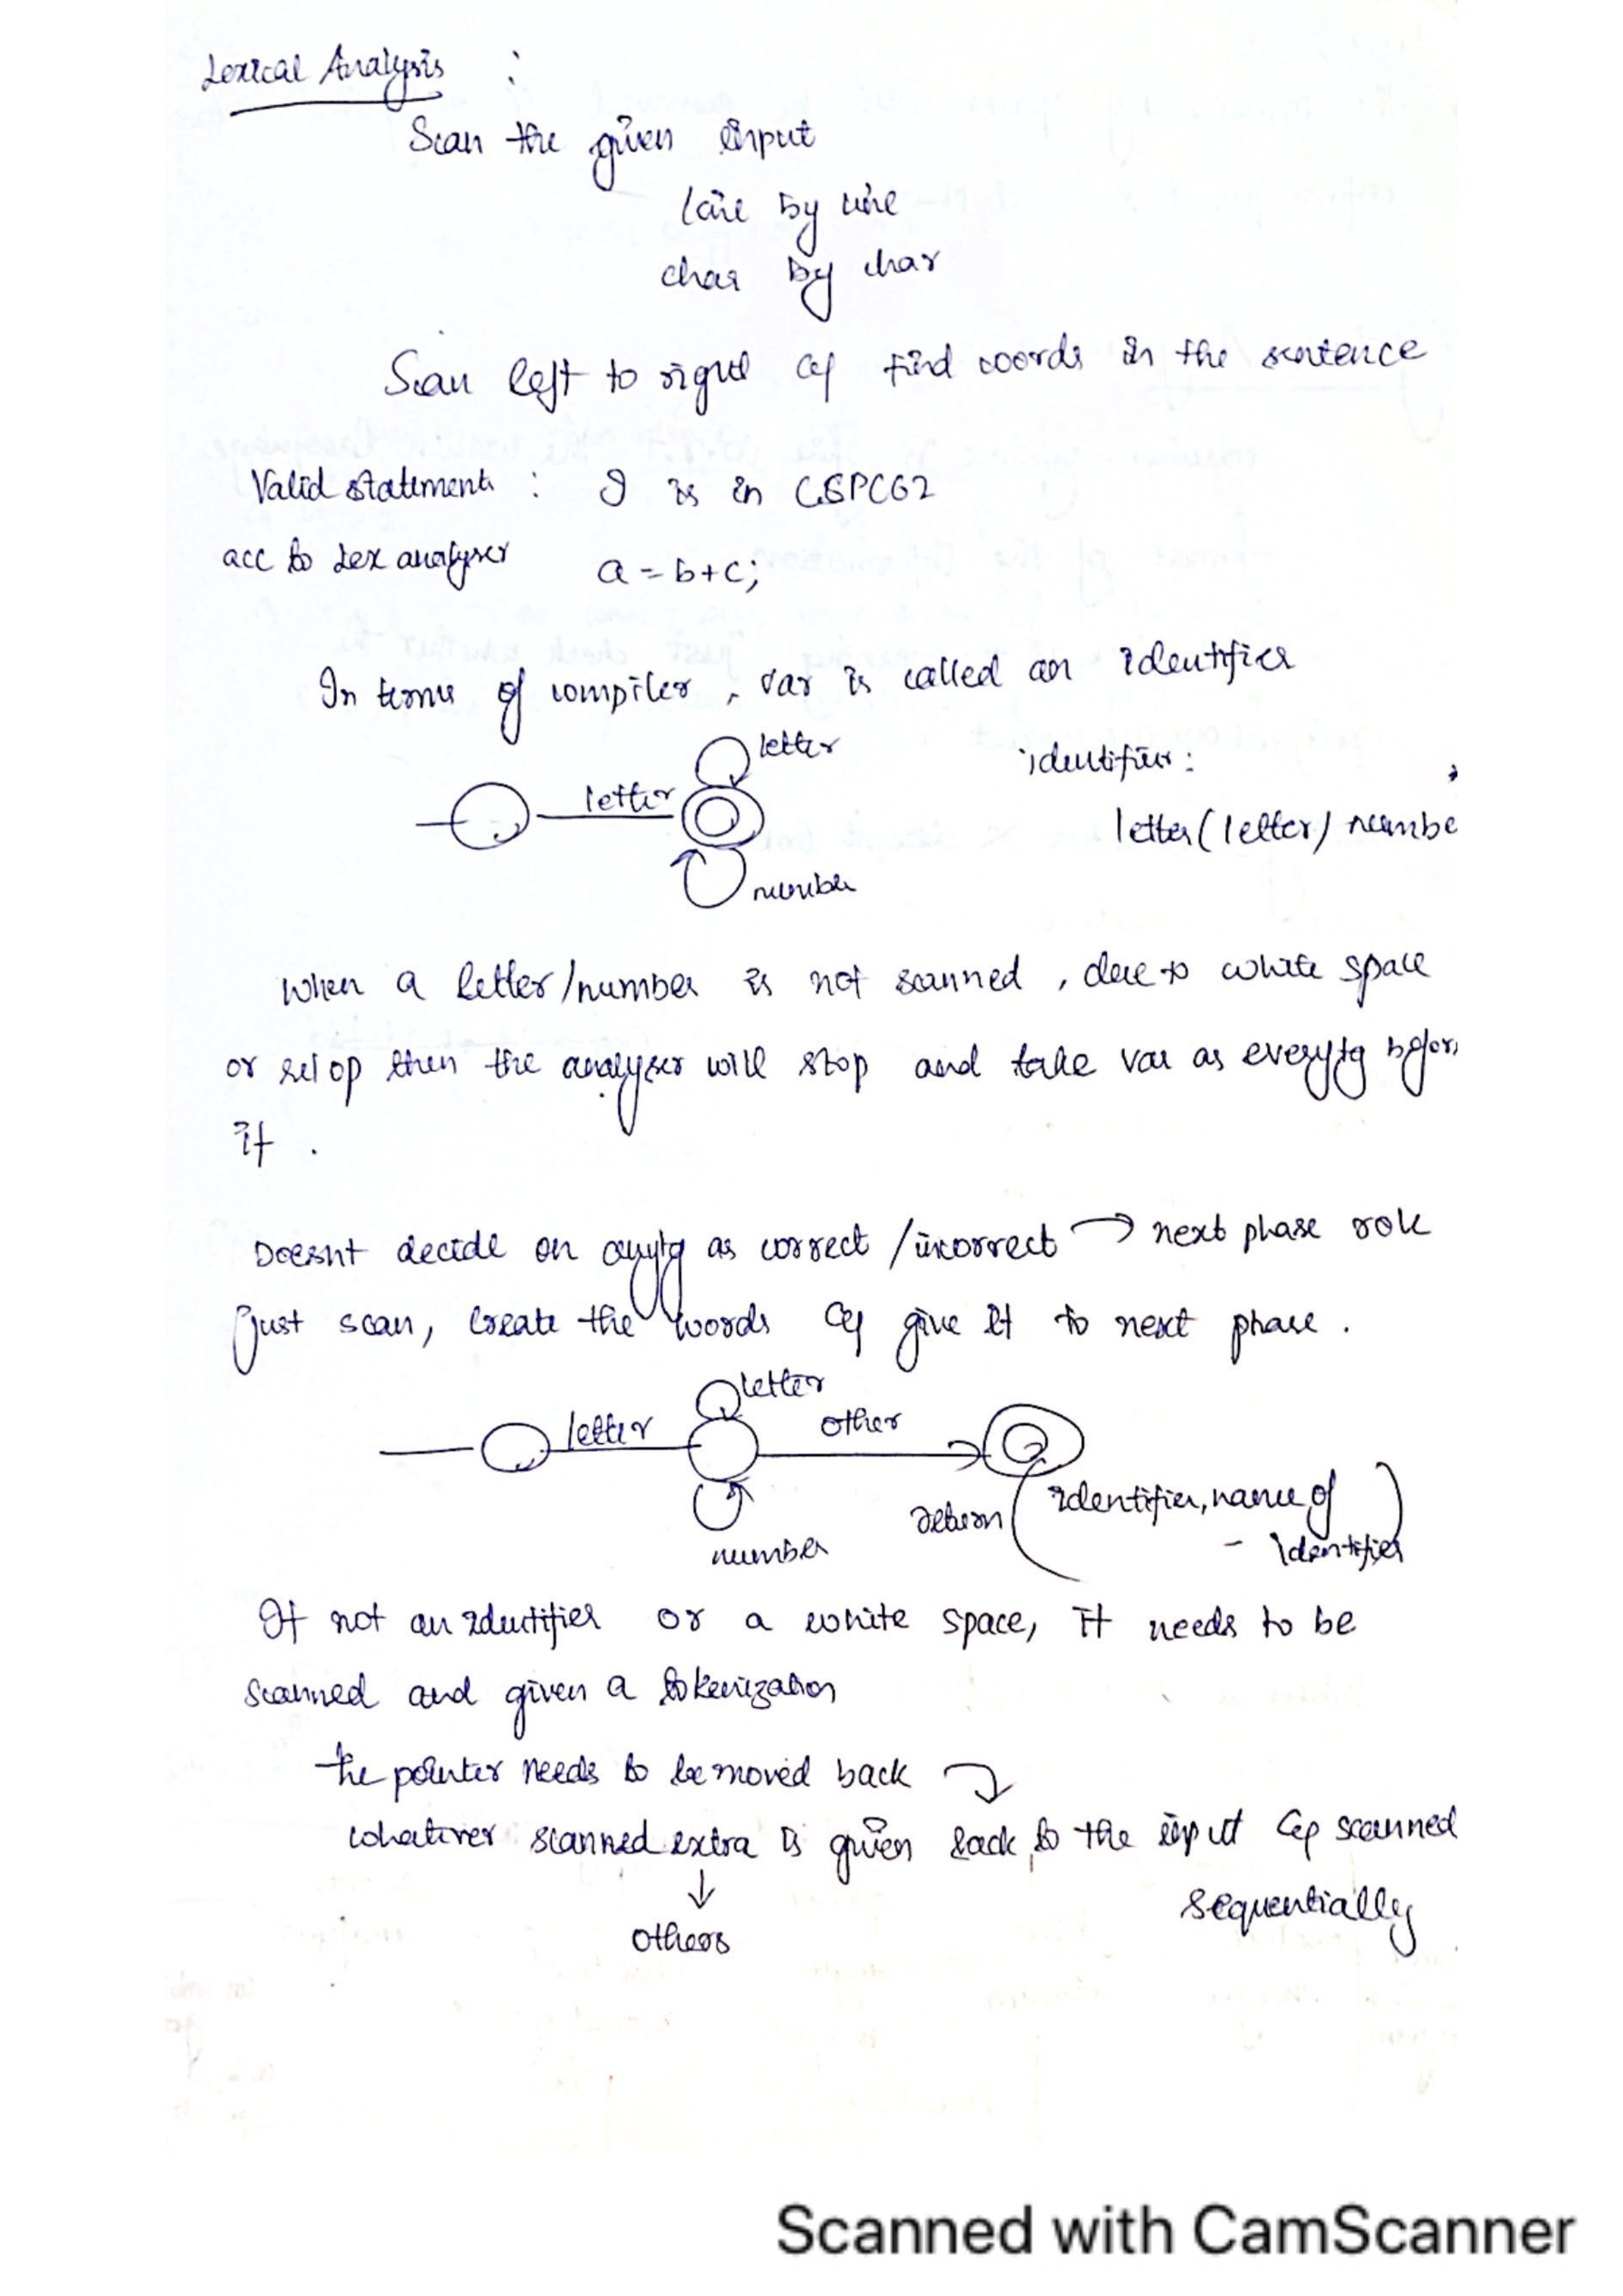 Lexical Analysis :
Scan the given input
line by line
char by char
Scan left to right & find words in the sentence
Valid statements : I is in CSPC62
acc to lex analyser a = b+c;
In terms of compiler, var is called an identifier
letter
letter
number
identifier :
letter(letter/numbe
When a letter/number is not scanned, due to white space
or rel op then the analyser will stop and take var as everytg before
it .
Doesnt decide on anytg as correct /incorrect → next phase role
just scan, create the words & give it to next phase .
letter
letter
other
number
return (identifier, name of
identifier)
If not an identifier or a white space, it needs to be
scanned and given a tokenization
the pointer needs to be moved back
whatever scanned extra is given back to the input & scanned
↓ sequentially
others
Scanned with CamScanner